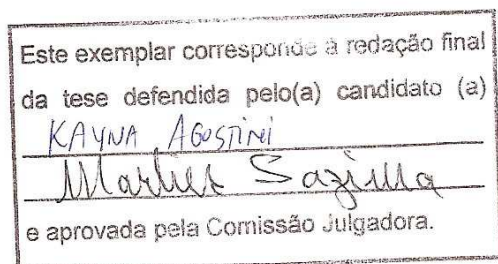 Este exemplar corresponde à redação final
da tese defendida pelo(a) candidato (a)
KAYNA AGOSTINI
Marlies Sazima
e aprovada pela Comissão Julgadora.